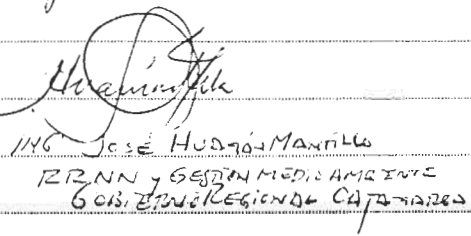 ING JOSÉ HUAMÁN MANTILLA
RRNN y GESTIÓN MEDIO AMBIENTE
GOBIERNO REGIONAL CAJAMARCA